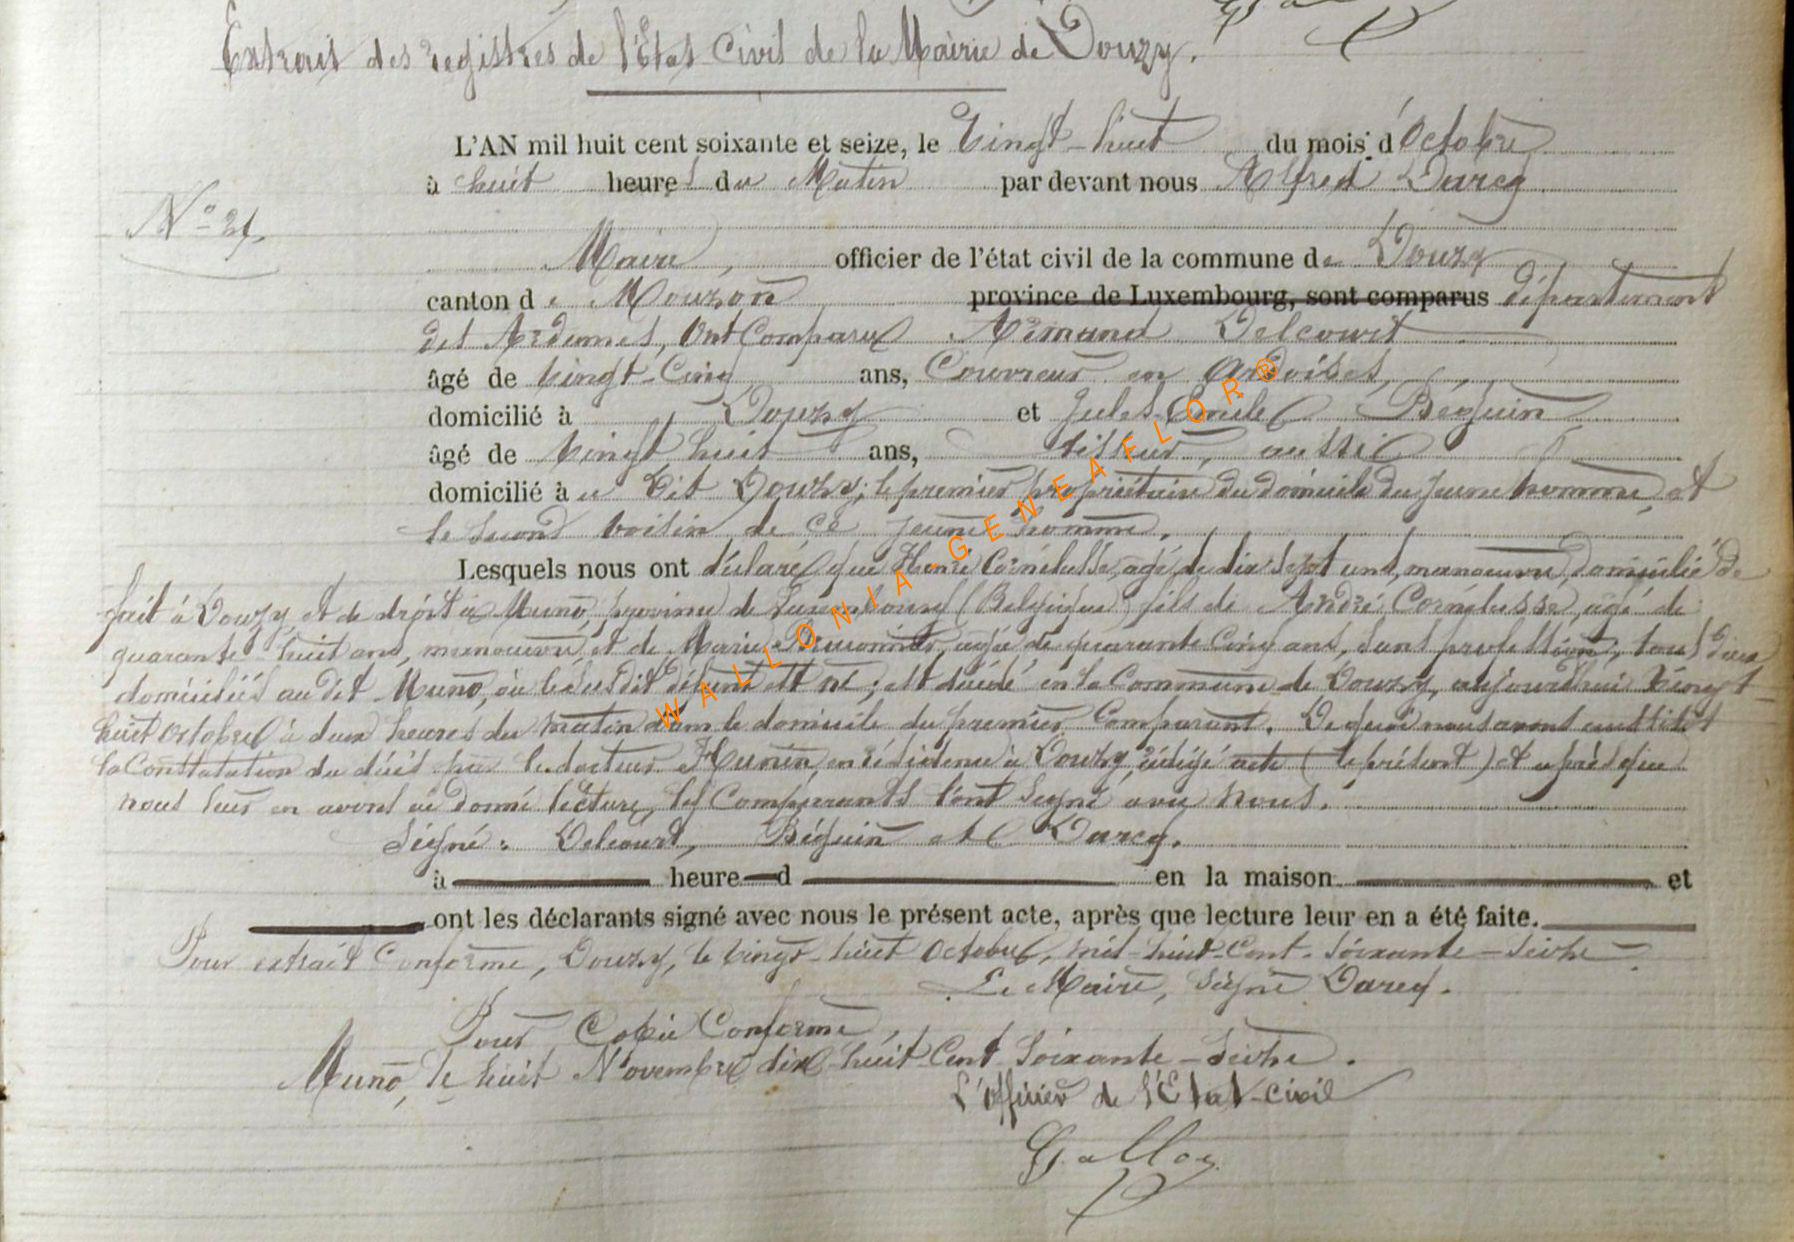 Extrait des registres de l'Etat Civil de la Mairie de Douzy.
L'AN mil huit cent soixante et seize, le Vingt-huit du mois d'Octobre
à huit heures du Matin par devant nous Alfred Darcq
N° 21.
Maire, officier de l'état civil de la commune de Douzy
canton de Mouzon province de Luxembourg, sont comparus département
des Ardennes, Ont Comparus Armand Delcourt
âgé de Vingt-Cinq ans, Couvreur en Ardoises,
domicilié à Douzy et Jules Emile Béguin
âgé de Vingt huit ans, tisseur, aussi
domicilié à u dit Douzy; le premier propriétaire du domicile du jeune homme, et
le second voisin de ce jeune homme.
Lesquels nous ont déclaré que Henri Cornélusse, agé de dix sept ans, manoeuvre, domicilié de
fait à Douzy, et de droit à Muno, province de Luxembourg (Belgique) fils de André Cornélusse, agé de
quarante huit ans, manoeuvre, et de Marie agée de quarante Cinq ans, sans profession, tous deux
domiciliés au dit Muno, où le susdit défunt est né; est décédé en la Commune de Douzy, aujourd'hui Vingt-
huit Octobre à deux heures du matin dans le domicile du premier Comparant. De quoi nous avons
la Constatation du décès par le docteur Hunin, en résidence à Douzy, rédigé acte (le présent) et après que
nous leur en avons eu donné lecture, les Comparants l'ont signé avec nous.
Signé: Delcourt, Béguin et Darcq.
à heure d en la maison et
ont les déclarants signé avec nous le présent acte, après que lecture leur en a été faite.
Pour extrait Conforme, Douzy, le Vingt-huit Octobre, mil-huit-Cent-Soixante-Seize
Le Maire, Signé Darcq.
Pour Copie Conforme,
Muno, le huit Novembre dix-huit Cent Soixante-Seize.
L'Officier de l'Etat-civil
Galloy
WALLONIA-GENEAFLOR®